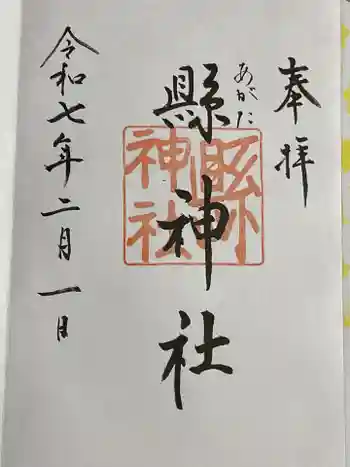 奉拝
あがた
縣神社
縣神社
令和七年二月一日